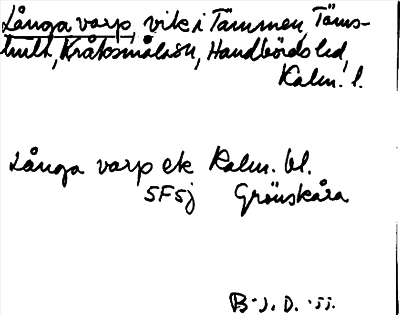 Långa varp, vik i Tämmen, Täms-
hult, Kråksmåla sn, Handbörds hd,
Kalm. l.
Långa varp ek Kalm. bl.
5F5j Grönskåra
B.J.D.